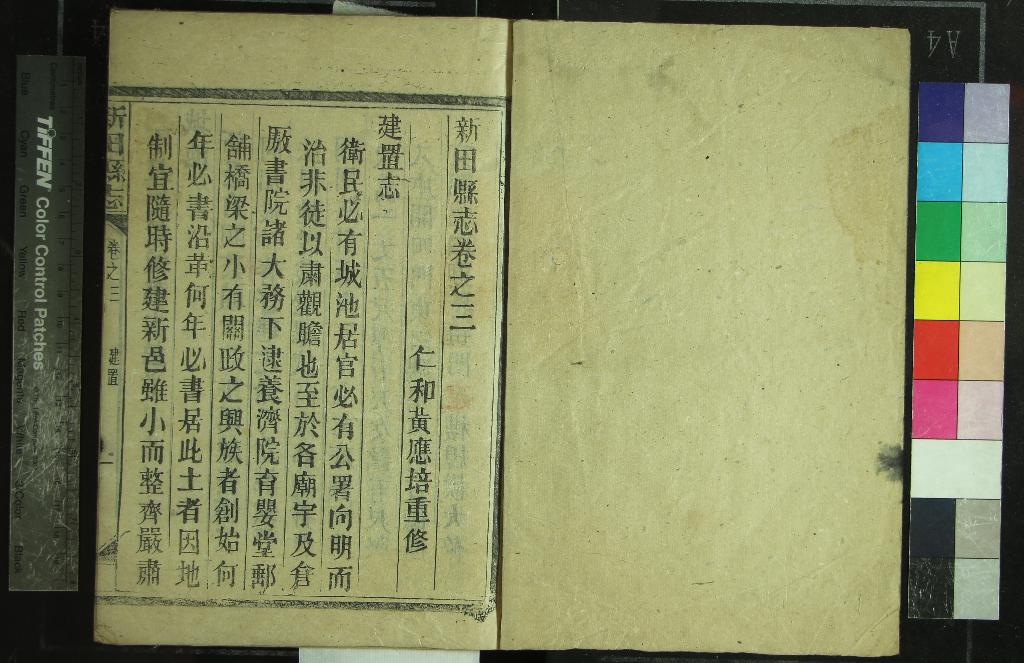 新田縣志卷之三
仁和黃應培重修
建置志
衛民必有城池居官必有公署向明而
治非徒以肅觀瞻也至於各廟宇及倉
厫書院諸大務下逮養濟院育嬰堂郵
舖橋梁之小有關政之興廢者創始何
年必書沿革何年必書居此土者因地
制宜隨時修建新邑雖小而整齊嚴肅
新田縣志
卷之三
建置
一
TIFFEN Color Control Patches
Blue
Cyan
Green
Yellow
Red
Magenta
White
3/Color
Black
A4